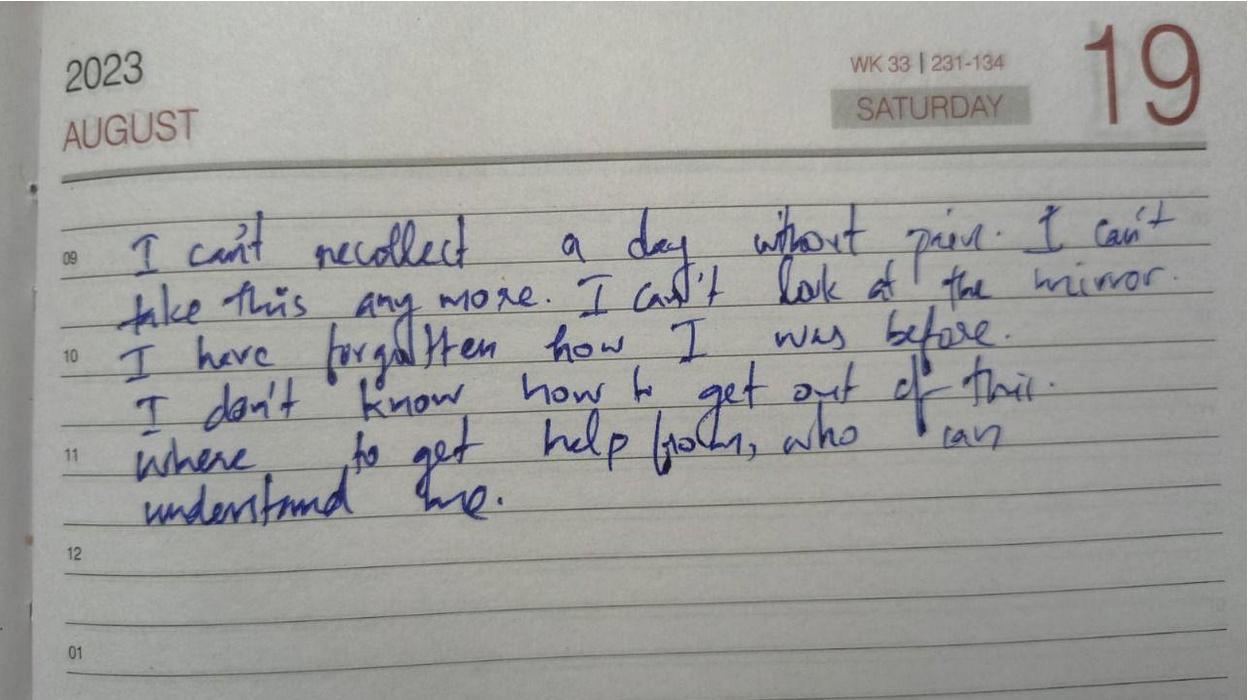 2023
WK 33 | 231-134
19
AUGUST
SATURDAY
09
I can't recollect a day without pain. I can't
take this any more. I can't look at the mirror.
10
I have forgotten how I was before.
I don't know how to get out of this.
11
where to get help from, who can
understand me.
12
01